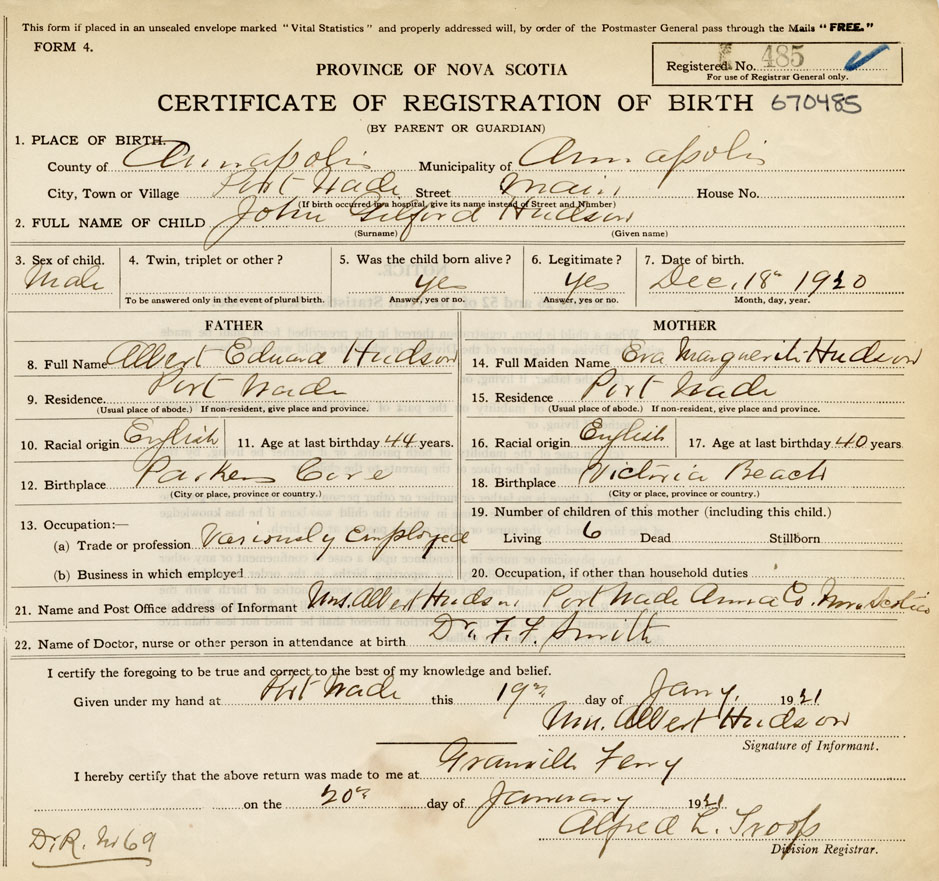 This form if placed in an unsealed envelope marked "Vital Statistics" and properly addressed will, by order of the Postmaster General pass through the Mails "FREE."
FORM 4.
Registered No. 485
For use of Registrar General only.
PROVINCE OF NOVA SCOTIA
CERTIFICATE OF REGISTRATION OF BIRTH 670485
(BY PARENT OR GUARDIAN)
1. PLACE OF BIRTH.
County of Annapolis Municipality of Annapolis
City, Town or Village Port Wade Street Main House No.
(If birth occurred in a hospital, give its name instead of Street and Number)
2. FULL NAME OF CHILD John Gilford Hudson
(Surname) (Given name)
3. Sex of child. 4. Twin, triplet or other? 5. Was the child born alive? 6. Legitimate? 7. Date of birth.
Male yes yes Dec. 18th 1920
To be answered only in the event of plural birth. Answer, yes or no. Answer, yes or no. Month, day, year.
FATHER MOTHER
8. Full Name Albert Edward Hudson 14. Full Maiden Name Eva Marguerite Hudson
9. Residence. Port Wade 15. Residence Port Wade
(Usual place of abode.) If non-resident, give place and province. (Usual place of abode.) If non-resident, give place and province.
10. Racial origin English 11. Age at last birthday 44 years. 16. Racial origin English 17. Age at last birthday 40 years.
12. Birthplace Parkers Cove 18. Birthplace Victoria Beach
(City or place, province or country.) (City or place, province or country.)
13. Occupation:— 19. Number of children of this mother (including this child.)
(a) Trade or profession Variously Employed Living 6 Dead Stillborn
(b) Business in which employed 20. Occupation, if other than household duties
21. Name and Post Office address of Informant Mrs. Albert Hudson Port Wade Anna Co. Nova Scotia
22. Name of Doctor, nurse or other person in attendance at birth Dr. F. F. Smith
I certify the foregoing to be true and correct to the best of my knowledge and belief.
Given under my hand at Port Wade this 19th day of Jany. 1921
Mrs. Albert Hudson
Signature of Informant.
I hereby certify that the above return was made to me at Granville Ferry
on the 20th day of January 1921
Alfred L. Troop
Division Registrar.
D.R. No 69